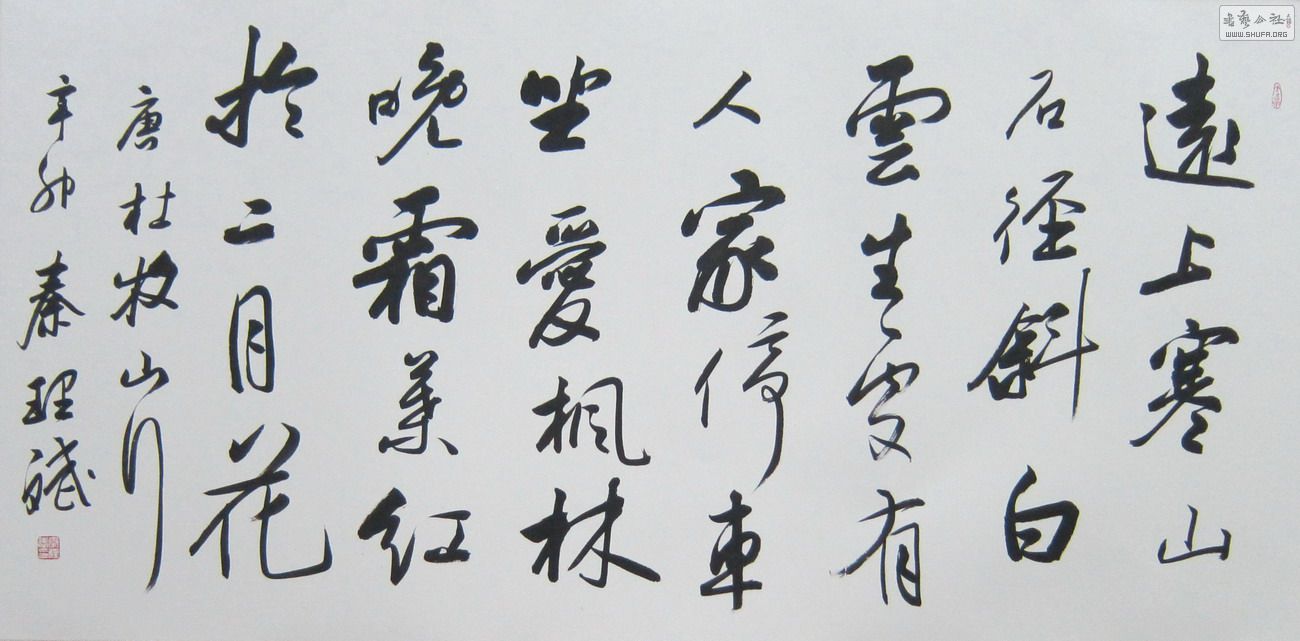 遠上寒山
石径斜白
雲生处有
人家停车
坐愛楓林
晚霜葉红
於二月花
唐杜牧山行
辛卯秦理斌
书艺公社
WWW.SHUFA.ORG